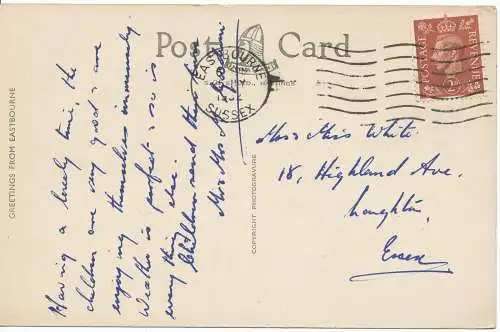 Post Card
GREETINGS FROM EASTBOURNE
COPYRIGHT PHOTOGRAVURE
EASTBOURNE
SUSSEX
POSTAGE REVENUE
Having a lovely time, the
children are very good & are
enjoying themselves immensely
Weather is perfect & so is
everything else.
Children send their love
Miss White.
18, Highland Ave.
Loughton,
Essex